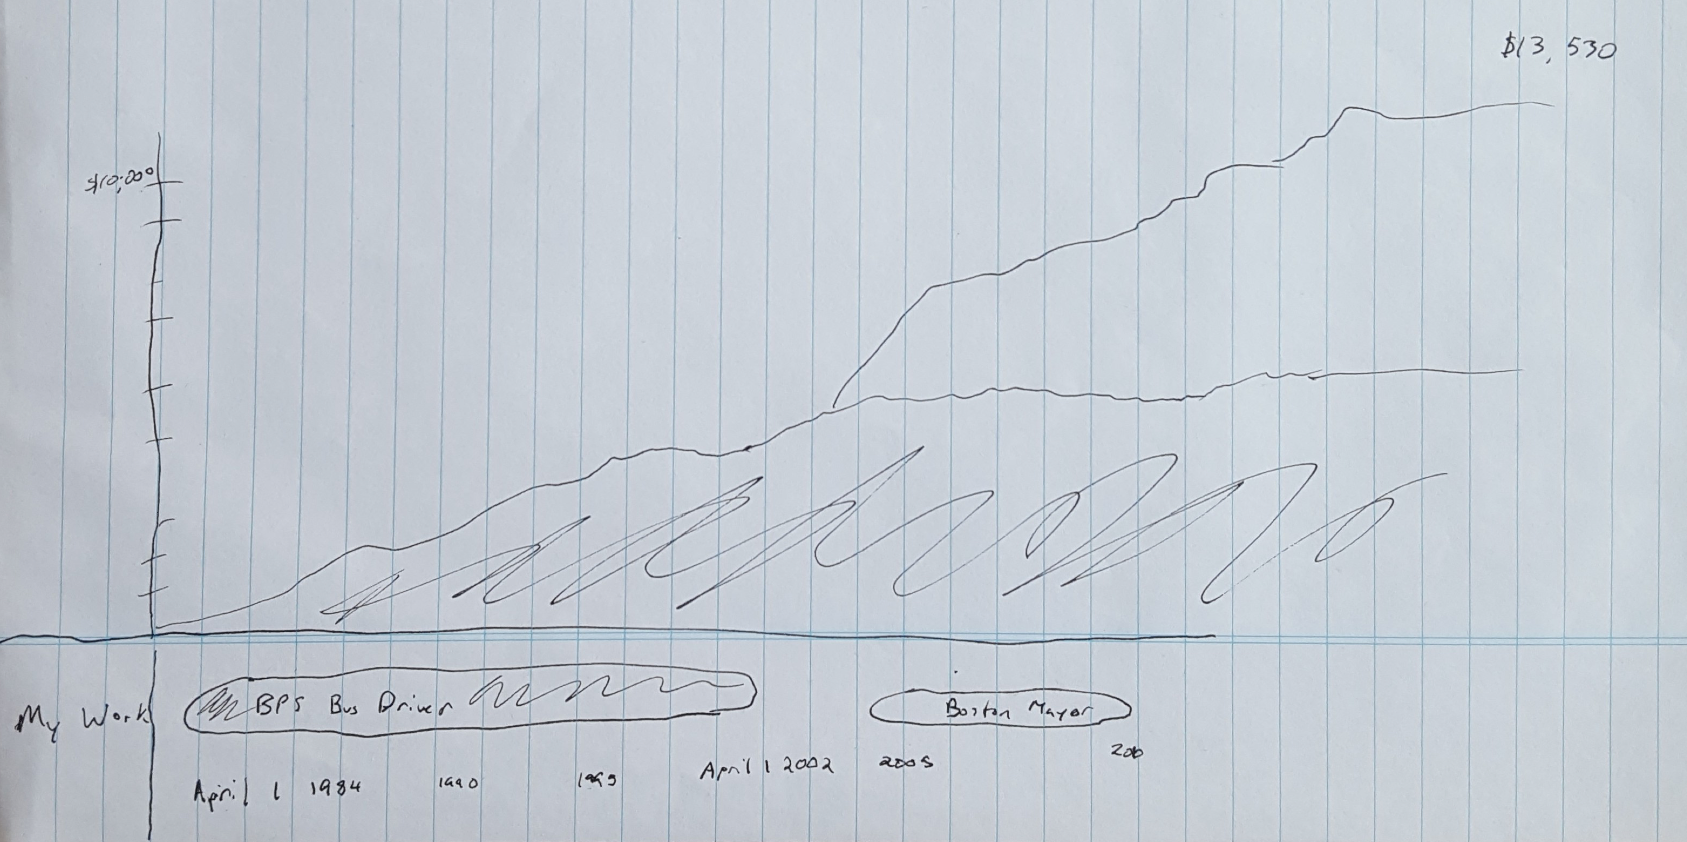 $13,530
$10,000
My Work
BPS Bus Driver
Boston Mayor
April 1 1984
1990
April 1 2002
2005